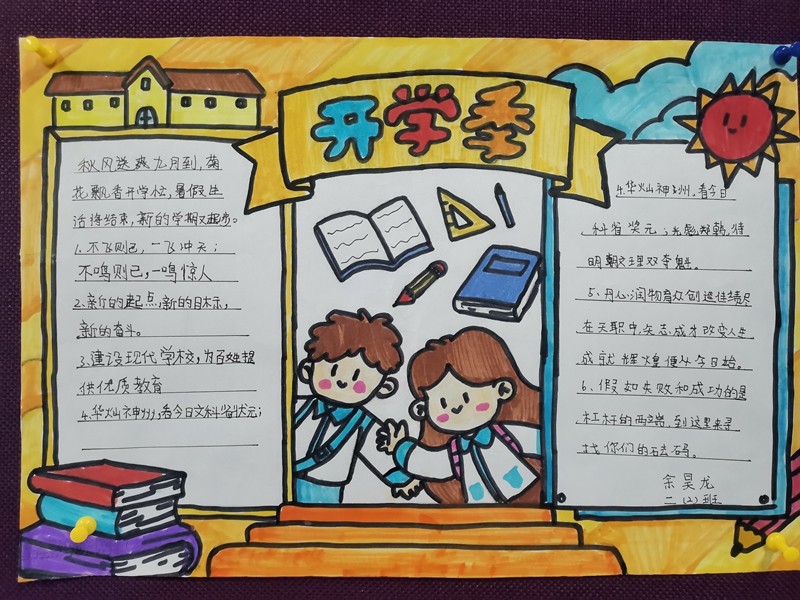 开学季
秋风送爽九月到，菊
花飘香开学忙，暑假生
活将结束，新的学期又起步。
1.不飞则已，一飞冲天；
不鸣则已，一鸣惊人
2.新的起点，新的目标，
新的奋斗。
3.建设现代学校，为百姓提
供优质教育
4.华灿神州，看今日文科省状元；
4.华灿神州，看今日
科省奖元；光彪邦韩，待
明朝文理双夺魁。
5、丹心润物育众创造佳绩尽
在天职中，矢志成才改变人生
成就辉煌便从今日始。
6、假如失败和成功的是
杠杆的两端，到这里来寻
找你们的砝码。
余昊龙
二（2）班